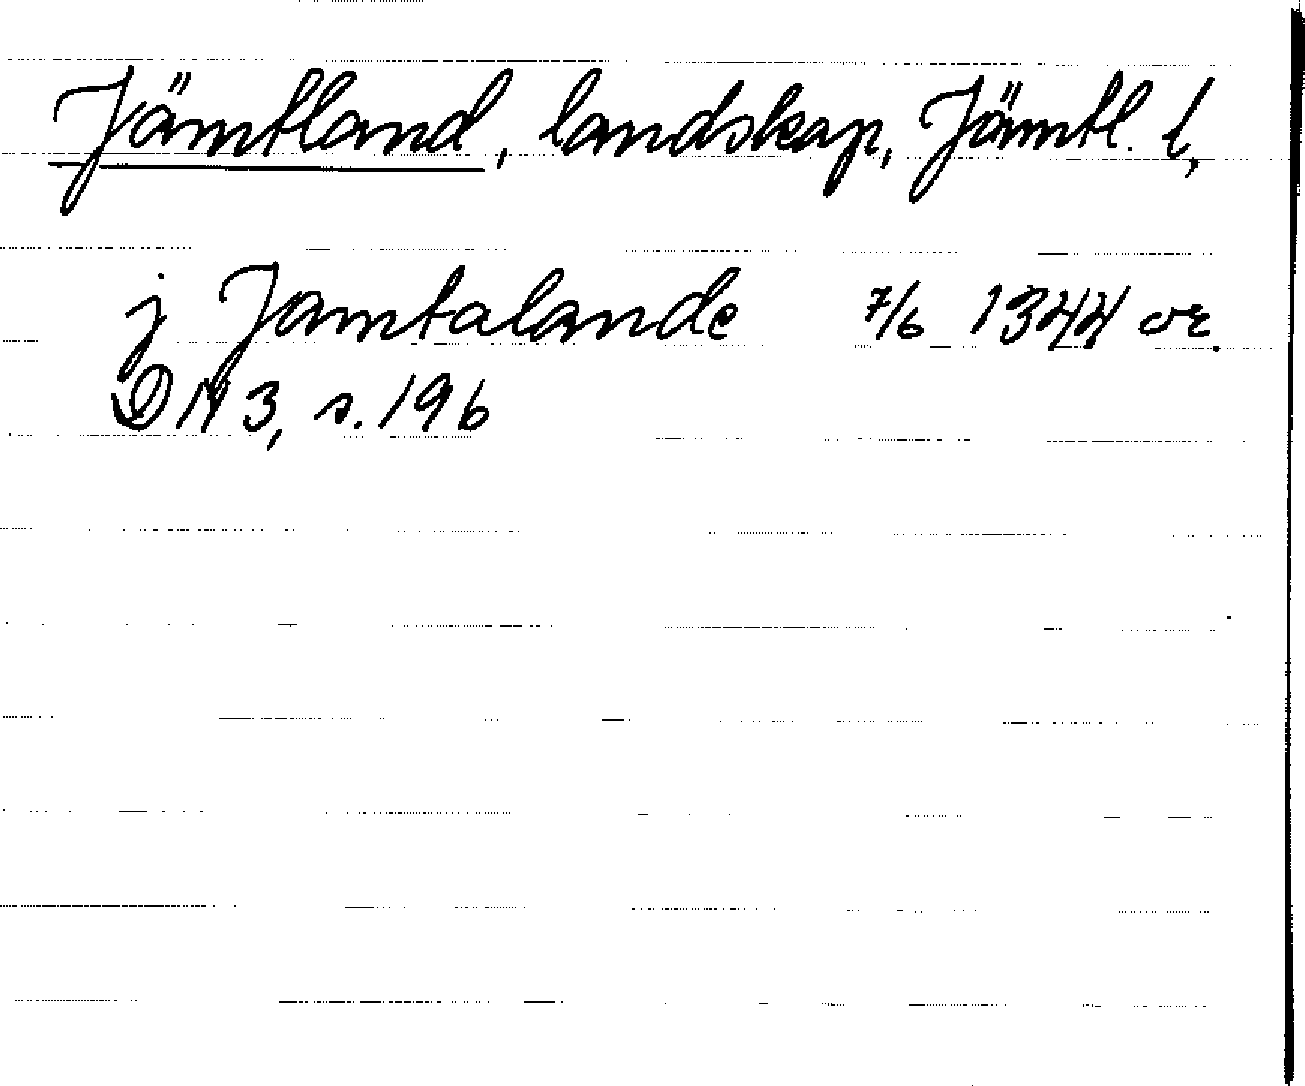 Jämtland, landskap, Jämtl. l,
j Jamtalande 7/6 1344 or.
DN 3, s. 196